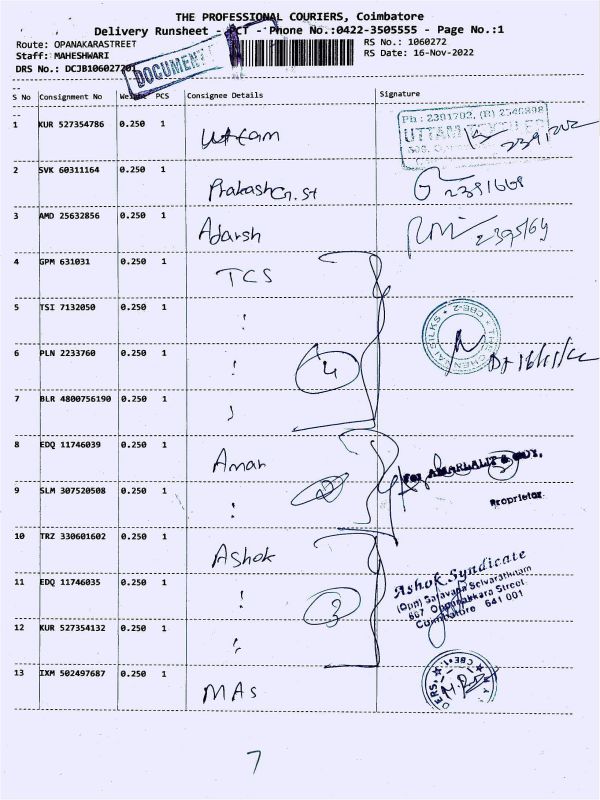 THE PROFESSIONAL COURIERS, Coimbatore
Delivery Runsheet - Phone No.:0422-3505555 - Page No.:1
Route: OPANAKARASTREET RS No.: 1060272
Staff: MAHESHWARI RS Date: 16-Nov-2022
DRS No.: DCJB106027201
DOCUMENT
S No Consignment No Weight PCS Consignee Details Signature
1 KUR 527354786 0.250 1 Uttam
Ph : 2391702, (R) 2546898
UTTAM
2391702
2 SVK 60311164 0.250 1 Prakash G.St 2391669
3 AMD 25632856 0.250 1 Adarsh
4 GPM 631031 0.250 1 TCS
5 TSI 7132050 0.250 1
THE CHENNAI SILKS CBE-2
6 PLN 2233760 0.250 1 4
7 BLR 4800756190 0.250 1
8 EDQ 11746039 0.250 1 Amar
For AMARLALIT & GUY.
9 SLM 307520508 0.250 1
Proprietor
10 TRZ 330601602 0.250 1 Ashok
Ashok Syndicate
11 EDQ 11746035 0.250 1 3
(Opp) Saravana Selvarathnam
667 Oppanakkara Street
Coimbatore 641 001
12 KUR 527354132 0.250 1
13 IXM 502497687 0.250 1 MAs
7